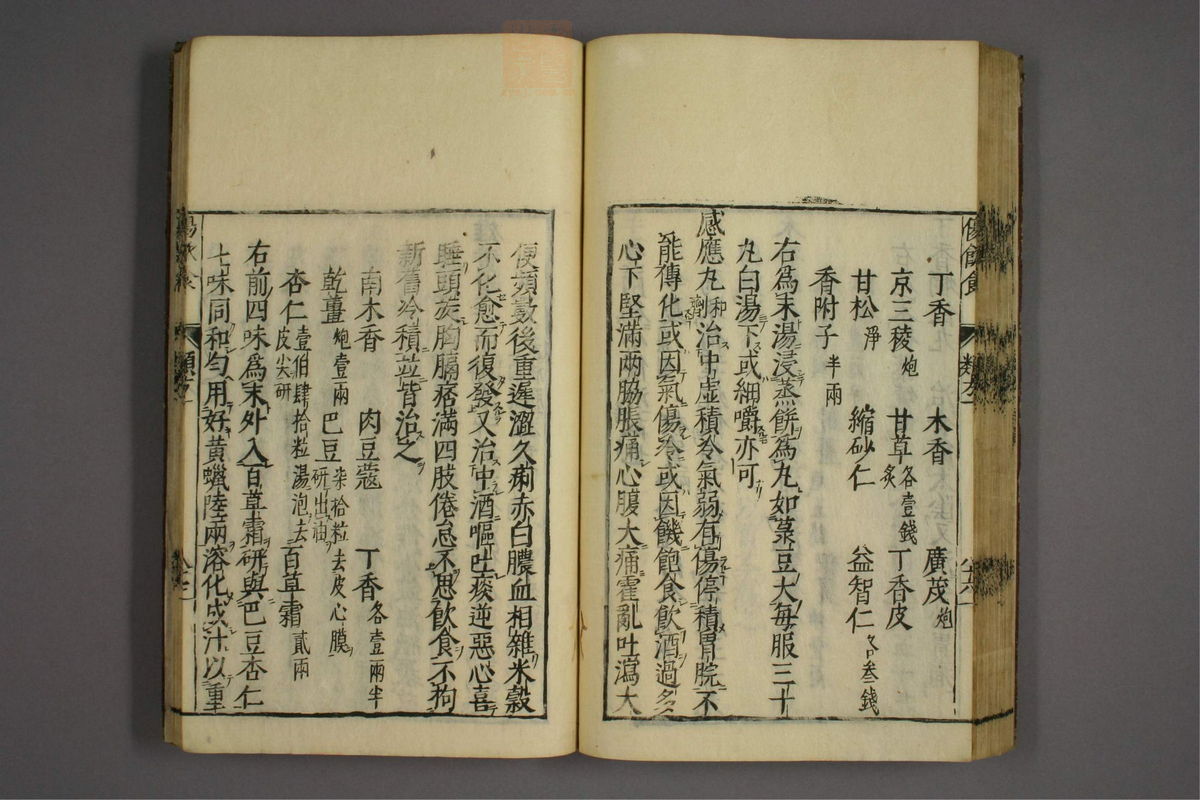 丁香　木香　廣茂炮
京三稜炮　甘草炙各壹錢　丁香皮
甘松淨　縮砂仁　益智仁各叁錢
香附子半兩
右爲末湯浸蒸餅爲丸如菉豆大每服三十
丸白湯下或細嚼亦可
感應丸和劑治中虛積冷氣弱有傷停積胃脘不
能傳化或因氣傷冷或因饑飽食飲酒過多
心下堅滿兩脇脹痛心腹大痛霍亂吐瀉大
便頻數後重遲澀久痢赤白膿血相雜米穀
不化愈而復發又治中酒嘔吐痰逆惡心喜
睡頭旋胸膈痞滿四肢倦怠不思飲食不拘
新舊冷積並皆治之
南木香　肉豆蔻　丁香各壹兩半
乾薑炮壹兩　巴豆柒拾粒去皮心膜研出油
杏仁壹伯肆拾粒湯泡去皮尖研　百草霜貳兩
右前四味爲末外入百草霜研與巴豆杏仁
七味同和勻用好黃蠟陸兩溶化成汁以重